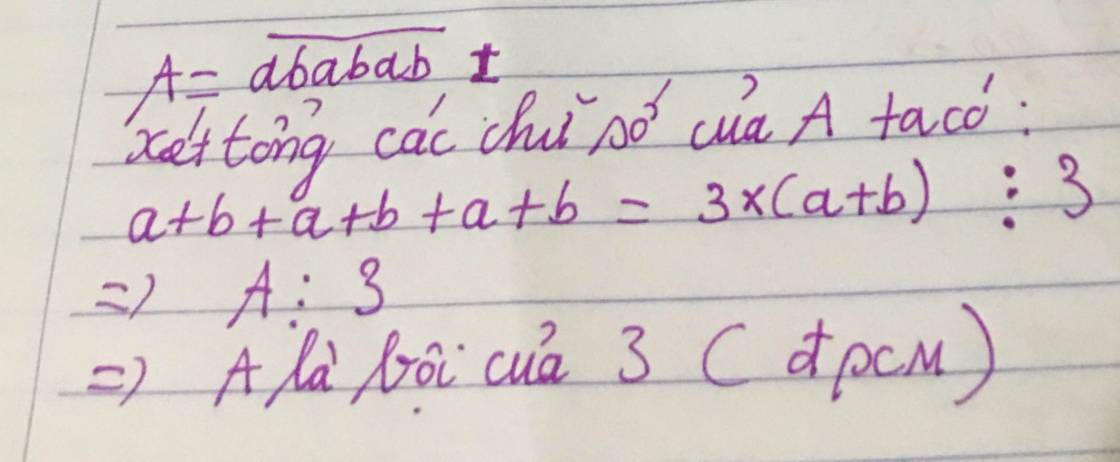 A = ababab
xét tổng các chữ số của A ta có:
a+b+a+b+a+b = 3×(a+b) ⋮ 3
=> A ⋮ 3
=> A là bội của 3 (đpcm)